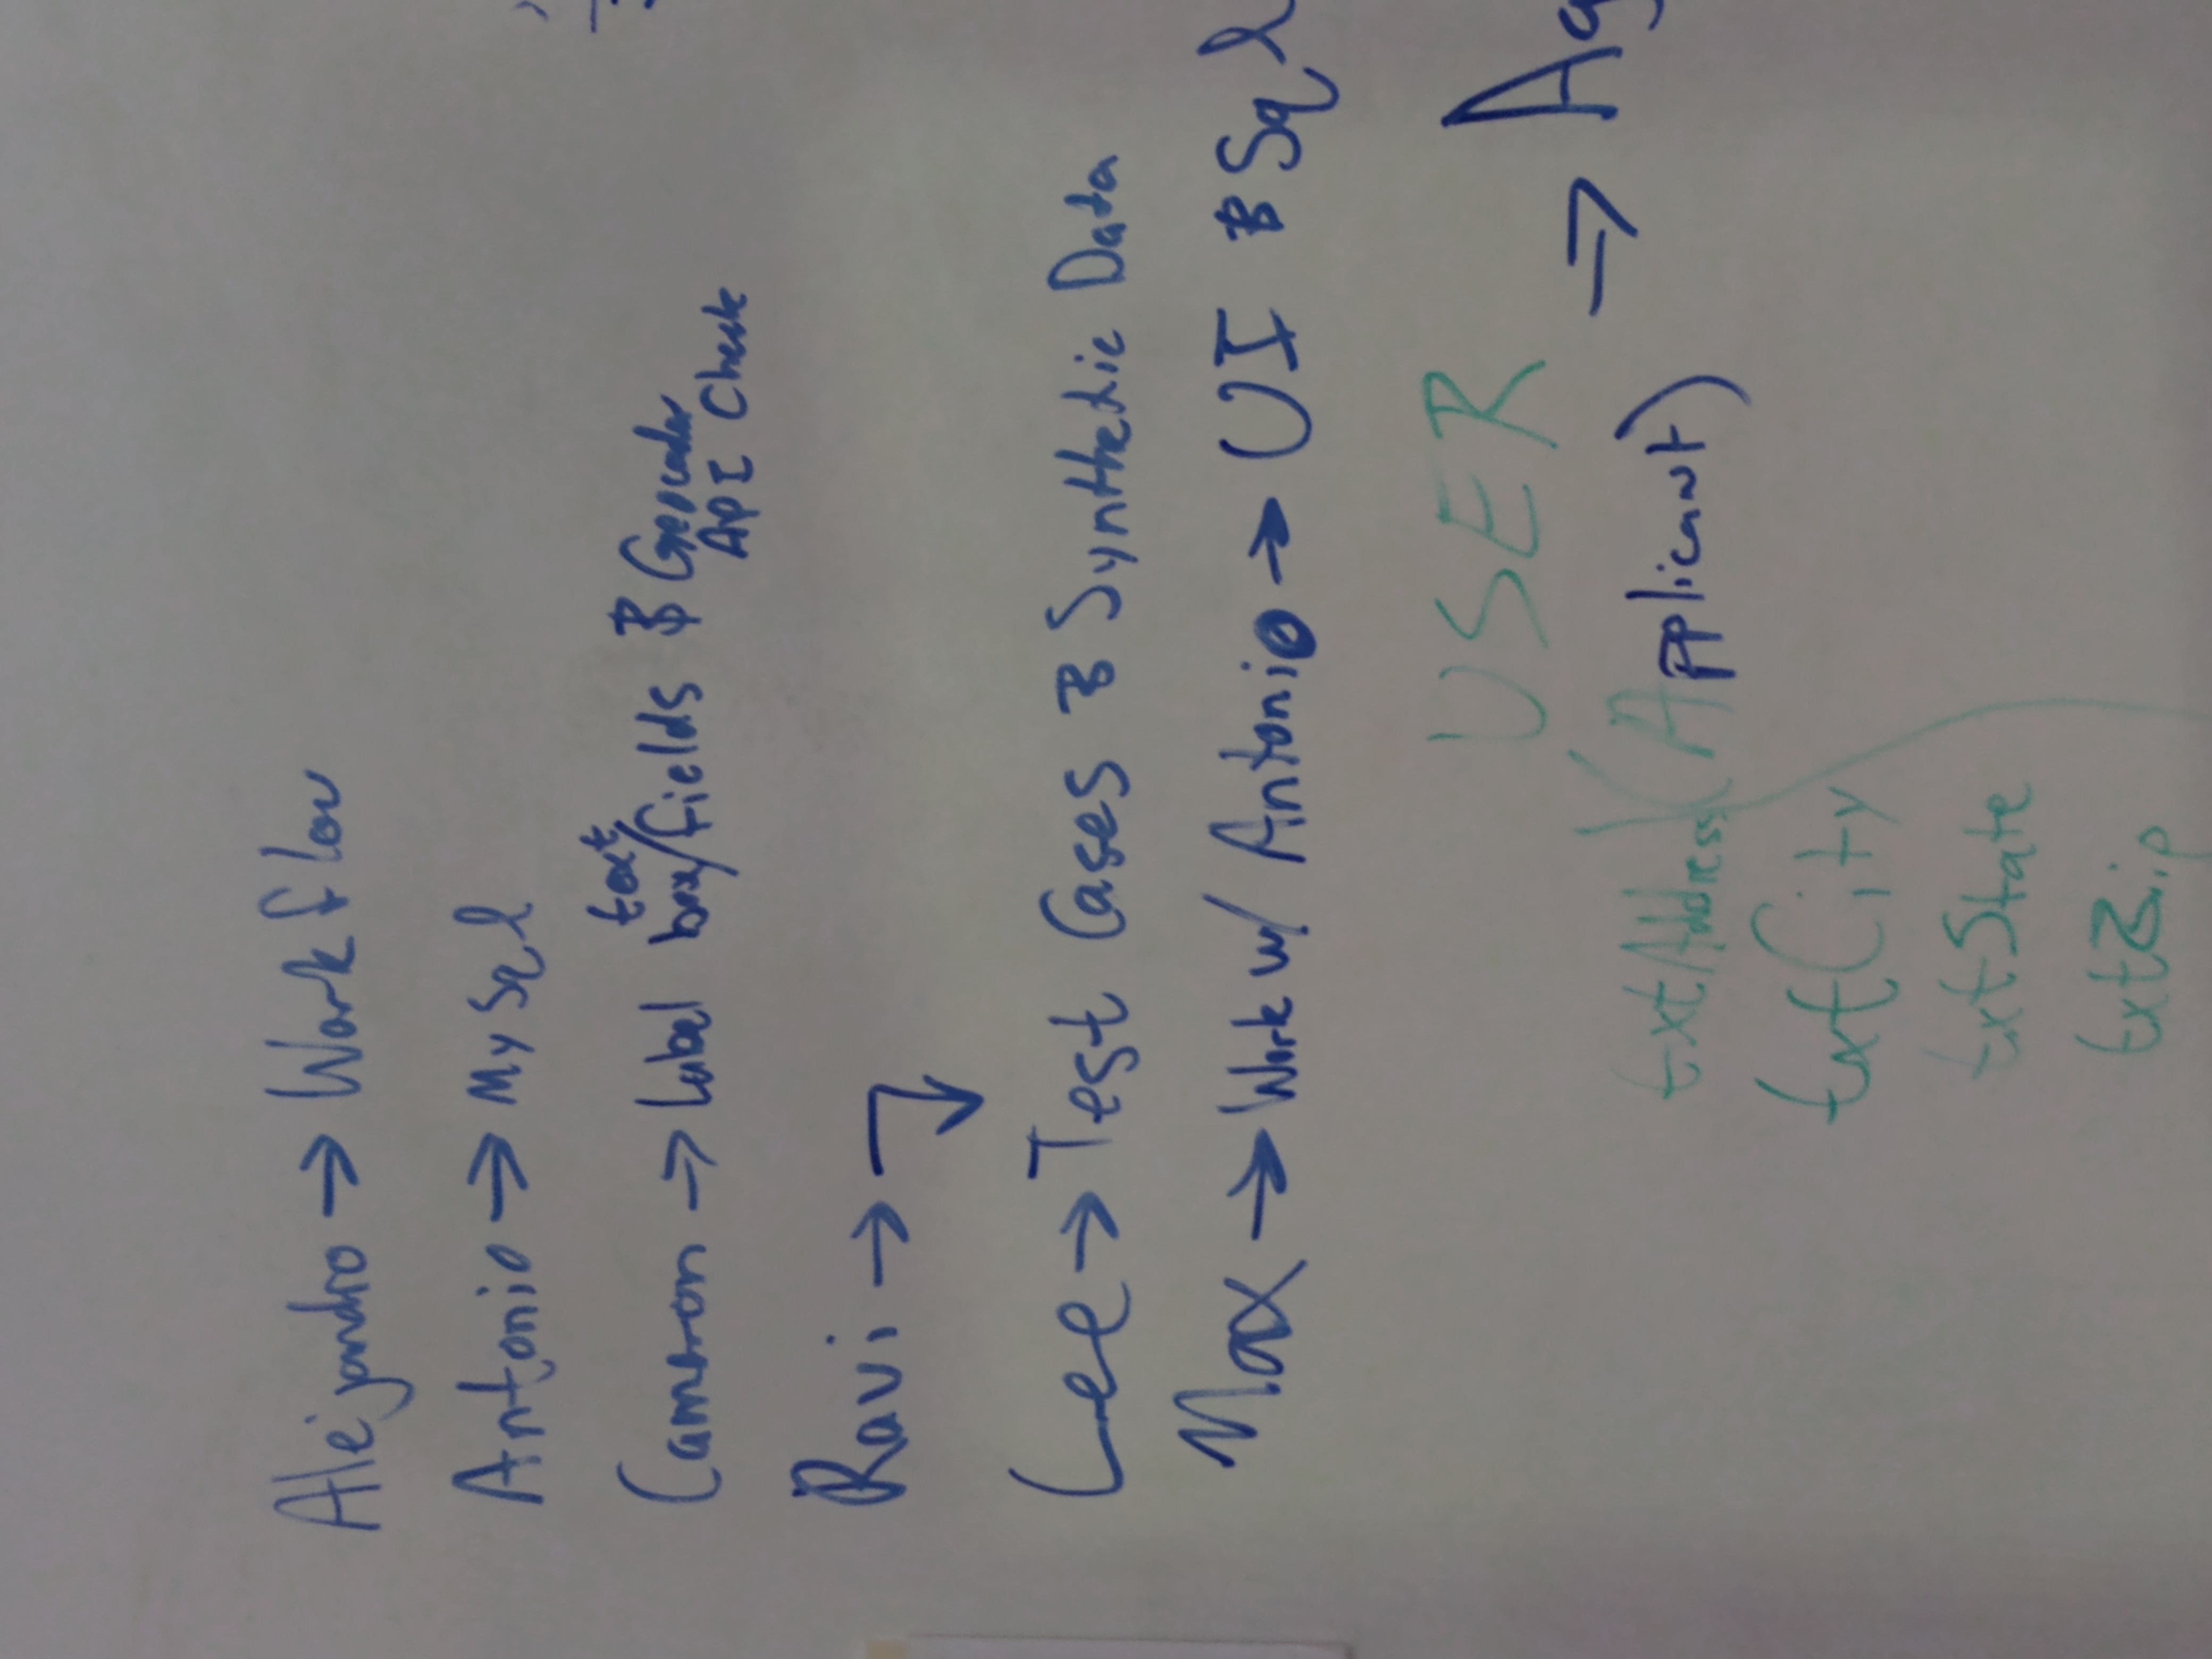 Alejandro → Workflow
Antonio → MySql
text
Cameron → Label box/fields & Geocoder
API Check
Ravi →
Lee → Test Cases & Synthetic Data
Max → Work w/ Antonio → UI & Sql
USER
→ Ag
txtAddress (Applicant)
txtCity
txtState
txtZip